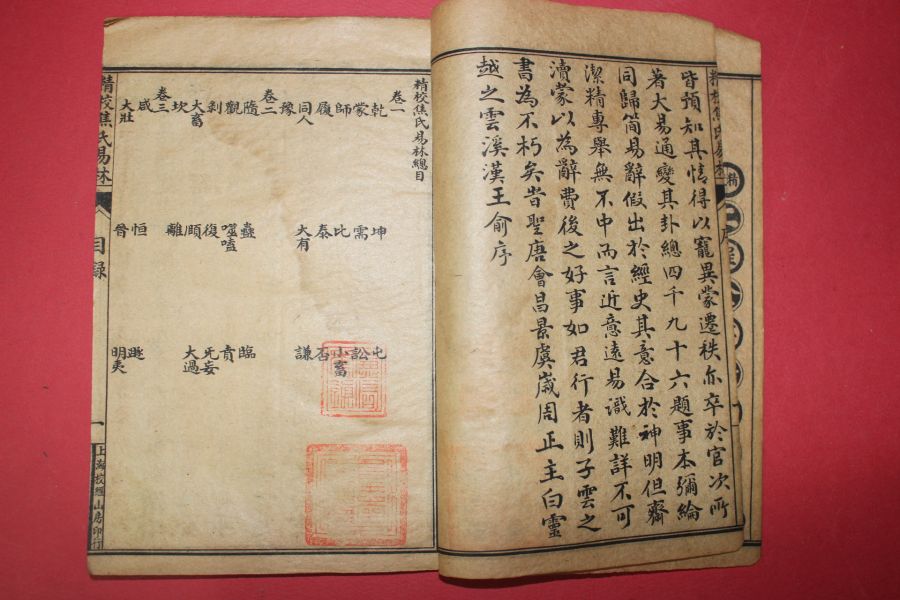 精校焦氏易林
序
皆預知其情得以寵異蒙遷秩亦卒於官次所
著大易通變其卦總四千九十六題事本彌綸
同歸簡易辭假出於經史其意合於神明但齋
潔精專舉無不中而言近意遠易識難詳不可
瀆蒙以為辭費後之好事如君行者則子雲之
書為不朽矣旹聖唐會昌景虞歲周正主白靈
越之雲溪漢王俞序
精校焦氏易林總目
卷一
乾 坤 屯
蒙 需 訟
師 比 小畜
履 泰 否
同人 大有 謙
豫
卷二
隨 蠱 臨
觀 噬嗑 賁
剝 復 无妄
大畜 頤 大過
坎 離
卷三
咸 恒 遯
大壯 晉 明夷
精校焦氏易林 目錄 一 上海校經山房印行